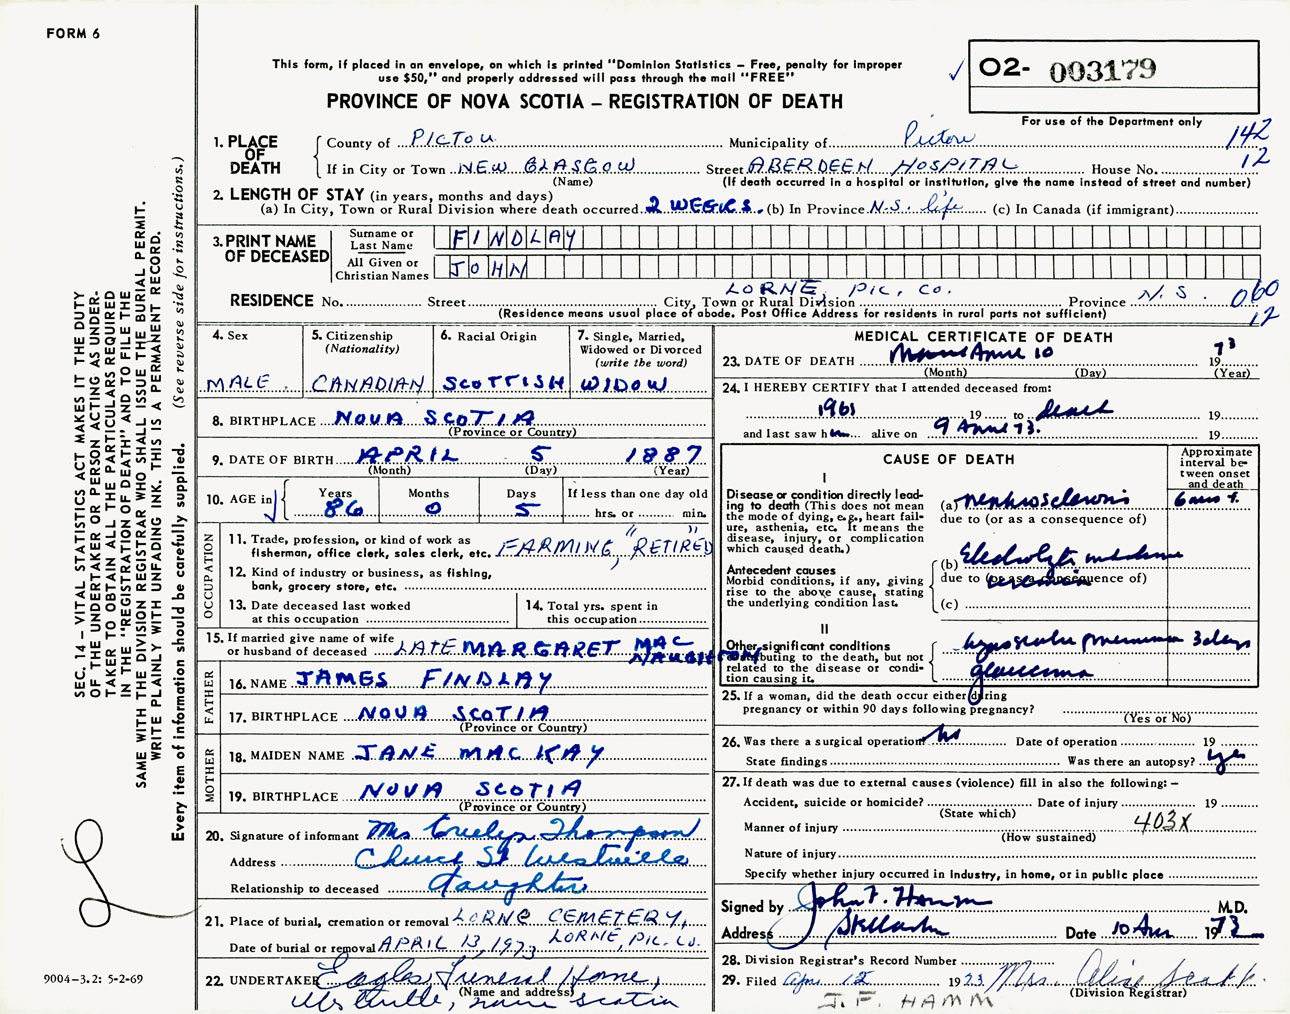 FORM 6
This form, if placed in an envelope, on which is printed "Dominion Statistics – Free, penalty for improper
use $50," and properly addressed will pass through the mail "FREE"
✓ O2- 003179
PROVINCE OF NOVA SCOTIA – REGISTRATION OF DEATH
For use of the Department only
1. PLACE OF DEATH
County of PICTOU Municipality of Pictou 142
If in City or Town NEW GLASGOW Street ABERDEEN HOSPITAL House No. 12
(Name) (If death occurred in a hospital or institution, give the name instead of street and number)
2. LENGTH OF STAY (in years, months and days)
(a) In City, Town or Rural Division where death occurred 2 WEEKS. (b) In Province N.S. life (c) In Canada (if immigrant)
3. PRINT NAME OF DECEASED
Surname or Last Name FINDLAY
All Given or Christian Names JOHN
LORNE, PIC. CO.
RESIDENCE No. Street City, Town or Rural Division Province N.S. 060
(Residence means usual place of abode. Post Office Address for residents in rural parts not sufficient) 12
4. Sex
MALE
5. Citizenship
(Nationality)
CANADIAN
6. Racial Origin
SCOTTISH
7. Single, Married,
Widowed or Divorced
(write the word)
WIDOW
8. BIRTHPLACE NOVA SCOTIA
(Province or Country)
9. DATE OF BIRTH APRIL 5 1887
(Month) (Day) (Year)
10. AGE in
Years Months Days If less than one day old
86 0 5 hrs. or min.
OCCUPATION
11. Trade, profession, or kind of work as
fisherman, office clerk, sales clerk, etc. FARMING, "RETIRED"
12. Kind of industry or business, as fishing,
bank, grocery store, etc.
13. Date deceased last worked
at this occupation
14. Total yrs. spent in
this occupation
15. If married give name of wife
or husband of deceased LATE MARGARET MAC
NAUGHTON
FATHER
16. NAME JAMES FINDLAY
17. BIRTHPLACE NOVA SCOTIA
(Province or Country)
MOTHER
18. MAIDEN NAME JANE MAC KAY
19. BIRTHPLACE NOVA SCOTIA
(Province or Country)
20. Signature of informant Mrs Evelyn Thompson
Address Church St Westville
Relationship to deceased daughter
21. Place of burial, cremation or removal LORNE CEMETERY,
Date of burial or removal APRIL 13, 1973 LORNE, PIC. CO.
22. UNDERTAKER Eagles Funeral Home,
(Name and address)
Westville, nova scotia
MEDICAL CERTIFICATE OF DEATH
23. DATE OF DEATH 10 1973
(Month) (Day) (Year)
24. I HEREBY CERTIFY that I attended deceased from:
1961 19 to death 19
and last saw h alive on 9 73. 19
CAUSE OF DEATH
Approximate
interval be-
tween onset
and death
I
Disease or condition directly lead-
ing to death (This does not
mean the mode of dying, e.g., heart fail-
ure, asthenia, etc. It means the
disease, injury, or complication
which caused death.)
(a) nephrosclerosis
due to (or as a consequence of)
Antecedent causes
Morbid conditions, if any, giving
rise to the above cause, stating
the underlying condition last.
(b) Electrolyte imbalance
due to (or as a consequence of)
uraemia
(c)
II
Other significant conditions
contributing to the death, but not
related to the disease or condi-
tion causing it.
hypostatic pneumonia 3 days
glaucoma
25. If a woman, did the death occur either during
pregnancy or within 90 days following pregnancy?
(Yes or No)
26. Was there a surgical operation? no Date of operation 19
State findings Was there an autopsy? yes
27. If death was due to external causes (violence) fill in also the following: –
Accident, suicide or homicide? Date of injury 19
(State which)
Manner of injury 403X
(How sustained)
Nature of injury
Specify whether injury occurred in industry, in home, or in public place
Signed by John F. Hamm M.D.
Address Stellarton Date 10 1973
28. Division Registrar's Record Number
29. Filed Apr. 12 1973 Mrs. Alice Scott
(Division Registrar)
J. F. HAMM
SEC. 14 – VITAL STATISTICS ACT MAKES IT THE DUTY
OF THE UNDERTAKER OR PERSON ACTING AS UNDER-
TAKER TO OBTAIN ALL THE PARTICULARS REQUIRED
IN THE "REGISTRATION OF DEATH" AND TO FILE THE
SAME WITH THE DIVISION REGISTRAR WHO SHALL ISSUE THE BURIAL PERMIT.
WRITE PLAINLY WITH UNFADING INK. THIS IS A PERMANENT RECORD.
Every item of information should be carefully supplied. (See reverse side for instructions.)
9004–3.2: 5-2-69